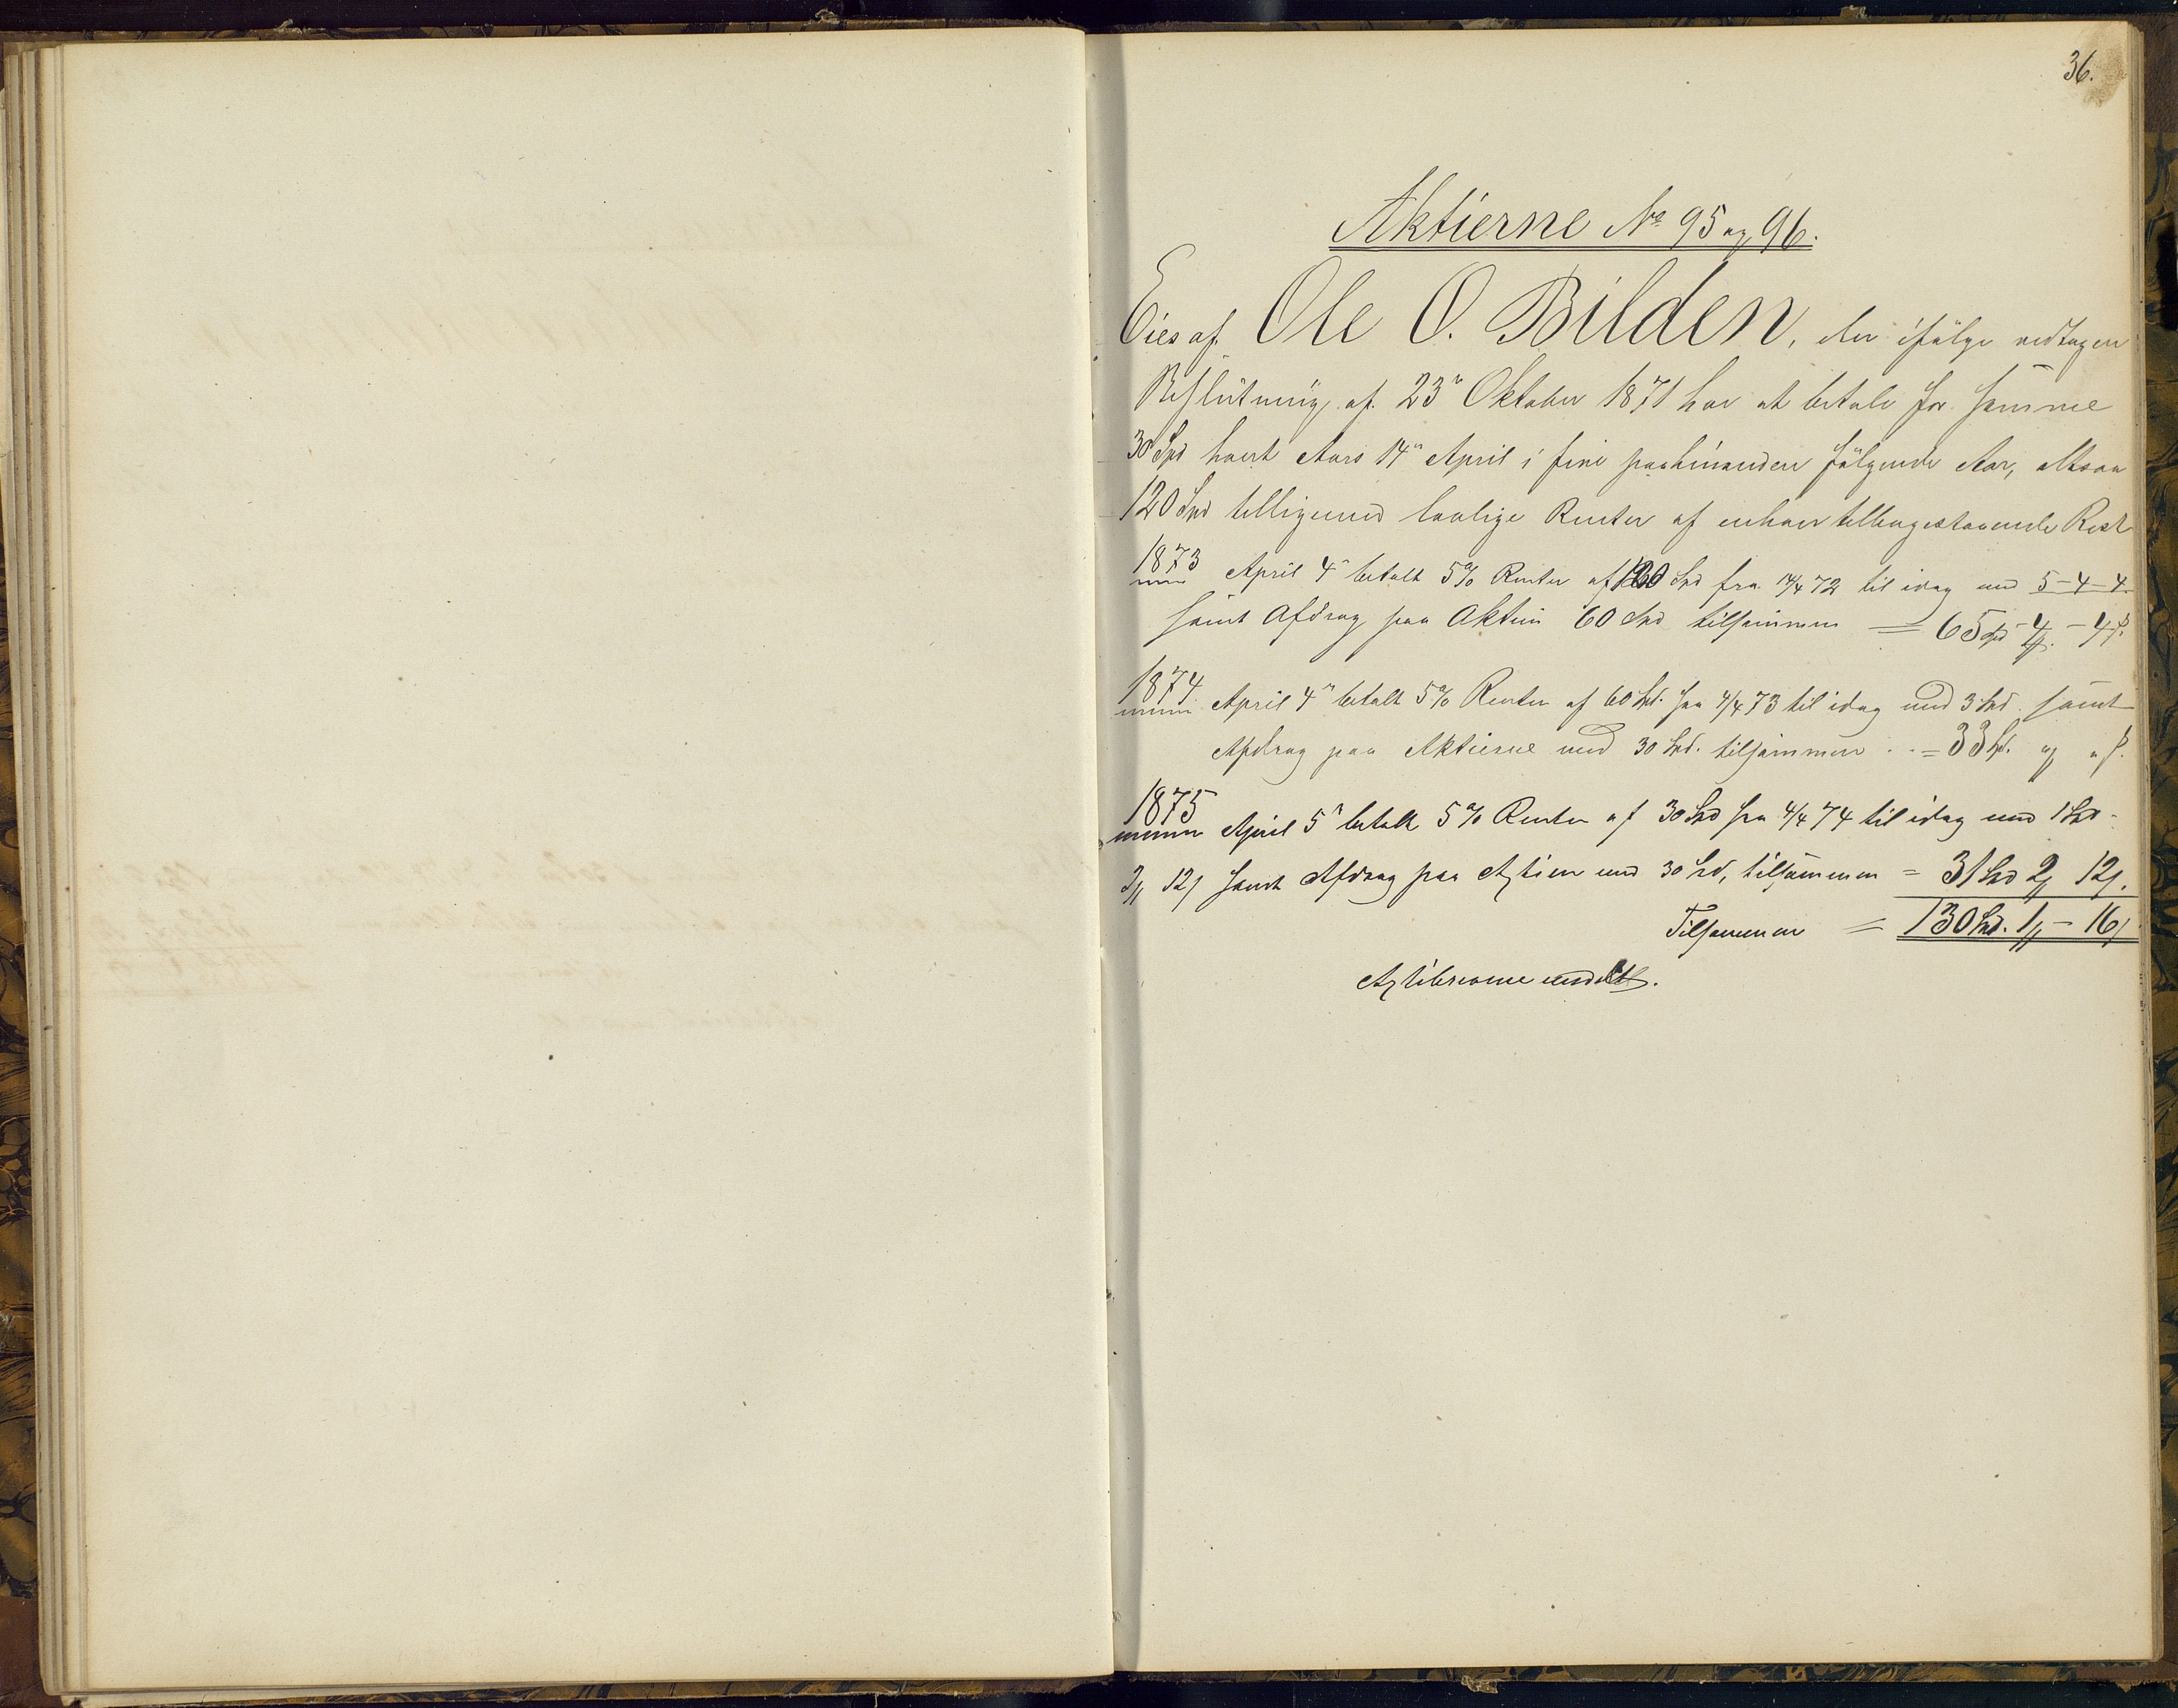 36.
Aktierne No 95 og 96.
Eies af Ole O. Bilden, der ifølge vedtagen
Beslutning af 23de Oktober 1871 har at betale for samme
30 Spd hvert Aars 14de April i fire paahinanden følgende Aar, altsaa
120 Spd tilligemed lovlige Renter af enhver tilbagestaaende Rest
1873 April 4de betalt 5% Renter af 120 Spd fra 14/4 72 til idag med 5-4-4
samt Afdrag paa Aktien 60 Spd tilsammen = 65 Spd 4 - 4
1874 April 4de betalt 5% Renter af 60 Spd. fra 4/4 73 til idag med 3 Spd. samt
Afdrag paa Aktierne med 30 Spd. tilsammen .. = 33 Spd. " "
1875 April 5te betalt 5% Renter af 30 Spd fra 4/4 74 til idag med 1 Spd
2 12 samt Afdrag paa Aktien med 30 Spd, tilsammen = 31 Spd 2 12
Tilsammen = 130 Spd. 1 - 16